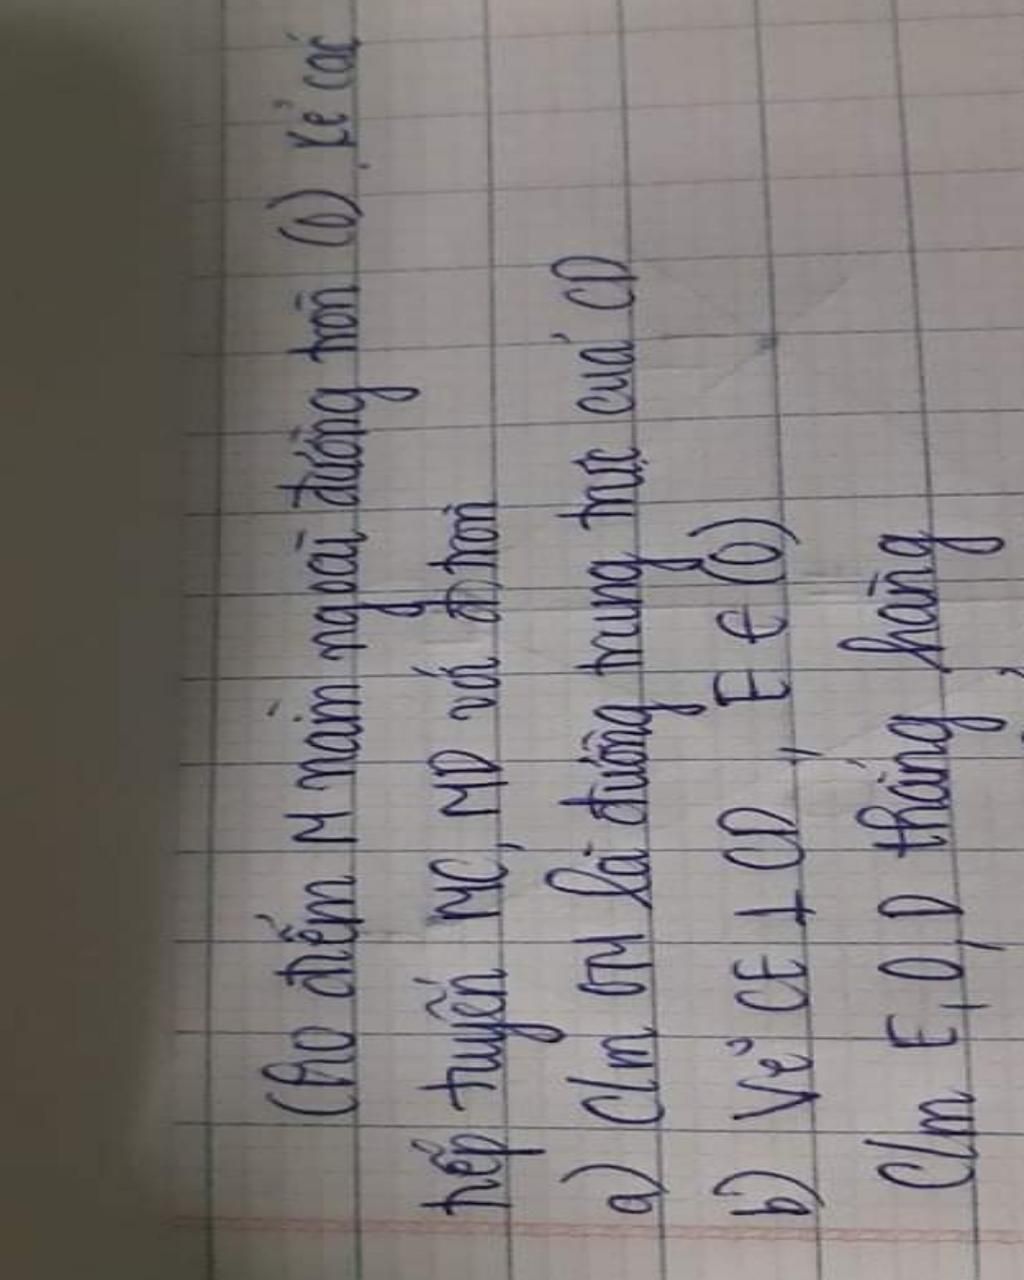 Cho điểm M nằm ngoài đường tròn (O). Kẻ các
tiếp tuyến MC, MD với đ tròn
a) C/m OM là đường trung trực của CD
b) Vẽ CE ⊥ CD, E ∈ (O)
C/m E, O, D thẳng hàng